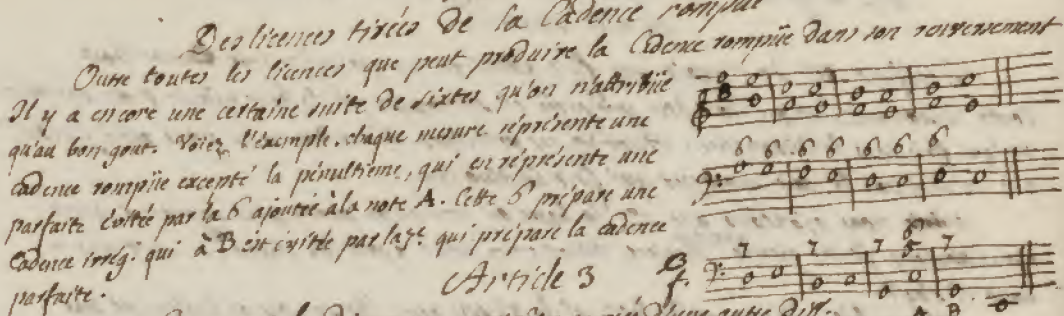 Des licences tirées de la Cadence rompüe
Outre toutes les licences que peut produire la Cadence rompüe dans son renversement
Il y a encore une certaine suite de sixtes qu'on n'attribüe
qu'au bon gout. Voiez l'éxemple. chaque mesure répresente une
cadence rompüe excepté la pénultieme, qui en répresente une
parfaite évitée par la 6 ajoutée à la note A. Cette 6 prépare une
Cadence irrég. qui à B est évitée par la 7e. qui prépare la cadence
parfaite.
Article 3
6 6 6 6 6 6 6
7 7 7 6 5 7
B
f.
A B
d'une autre diss.